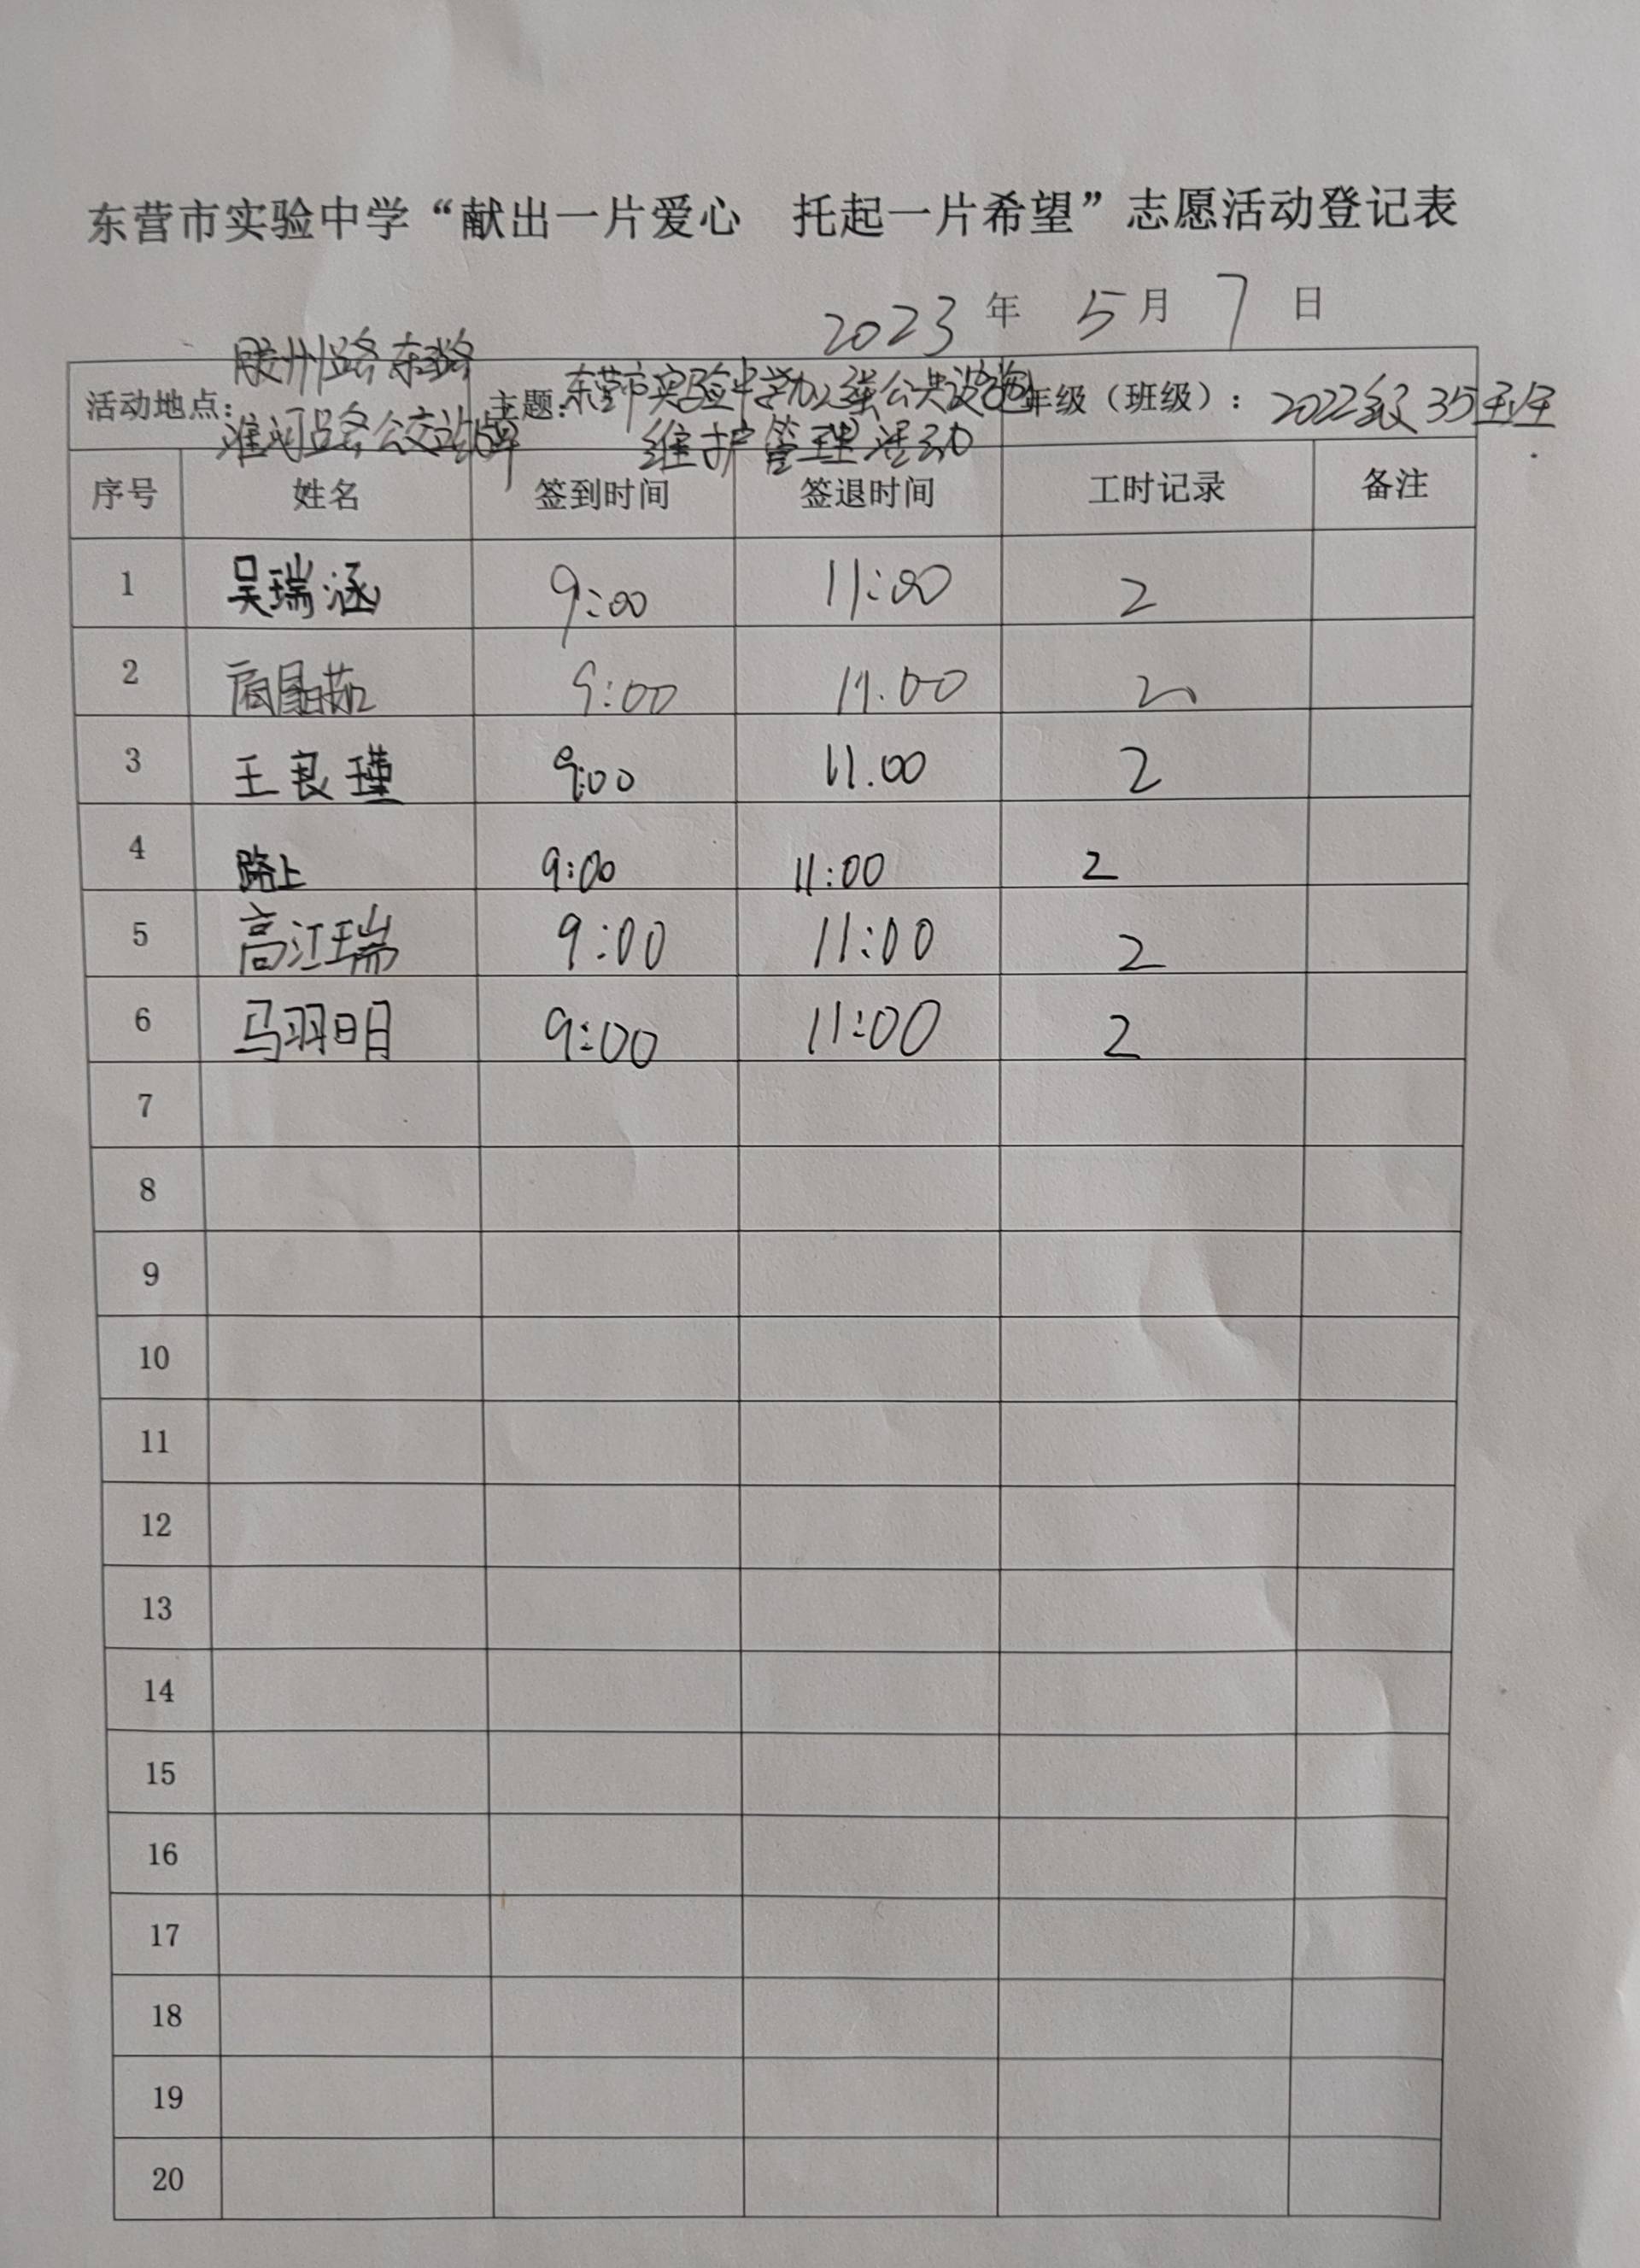 东营市实验中学“献出一片爱心 托起一片希望”志愿活动登记表
2023 年 5 月 7 日
活动地点：胶州路 东路 淮河路公交站牌 主题：东营市实验中学加强公共设施维护管理活动 年级（班级）：2022级 35班
序号 姓名 签到时间 签退时间 工时记录 备注
1 吴瑞涵 9:00 11:00 2
2 9:00 11.00 2
3 王良瑾 9:00 11.00 2
4 路上 9:00 11:00 2
5 高江瑞 9:00 11:00 2
6 马羽明 9:00 11:00 2
7
8
9
10
11
12
13
14
15
16
17
18
19
20